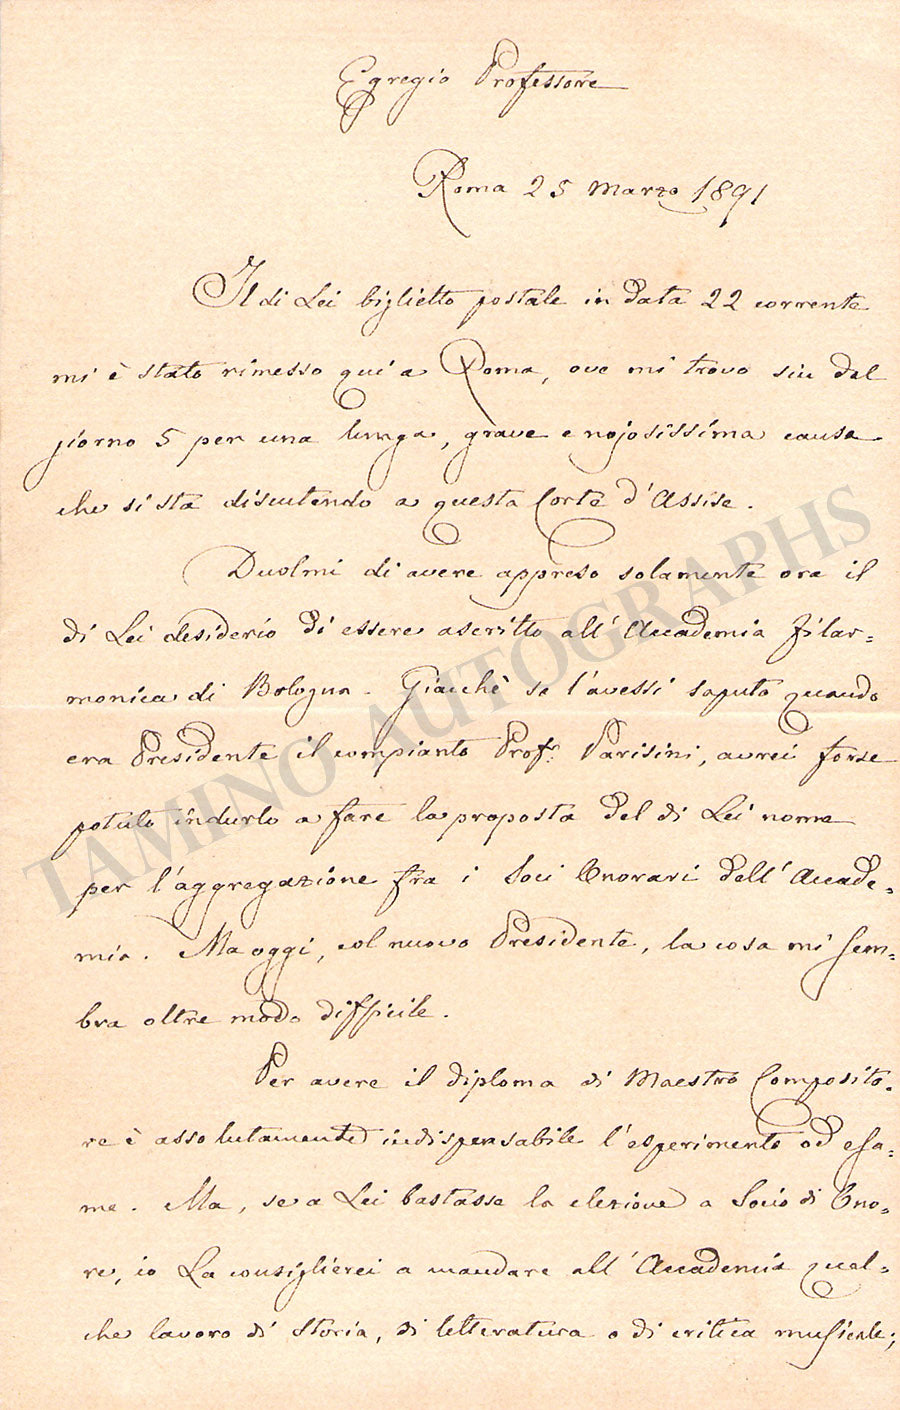 Egregio Professore
Roma 25 Marzo 1891
Il di Lei biglietto postale in data 22 corrente
mi è stato rimesso quì a Roma, ove mi trovo sin dal
giorno 5 per una lunga, grave e nojosissima causa
che si sta discutendo a questa Corte d'Assise.
Duolmi di avere appreso solamente ora il
di Lei desiderio di essere ascritto all'Accademia Filar=
monica di Bologna. Giacchè se l'avessi saputo quando
era Presidente il compianto Profr. Parisini, avrei forse
potuto indurlo a fare la proposta del di Lei nome
per l'aggregazione fra i Soci Onorari dell'Accade=
mia. Ma oggi, col nuovo Presidente, la cosa mi sem=
bra oltre modo difficile.
Per avere il diploma di Maestro Composito=
re è assolutamente indispensabile l'esperimento od esa=
me. Ma, se a Lei bastasse la elezione a Socio di Ono=
re, io La consiglierei a mandare all'Accademia qual=
che lavoro di storia, di letteratura o di critica musicale;
TAMINO AUTOGRAPHS